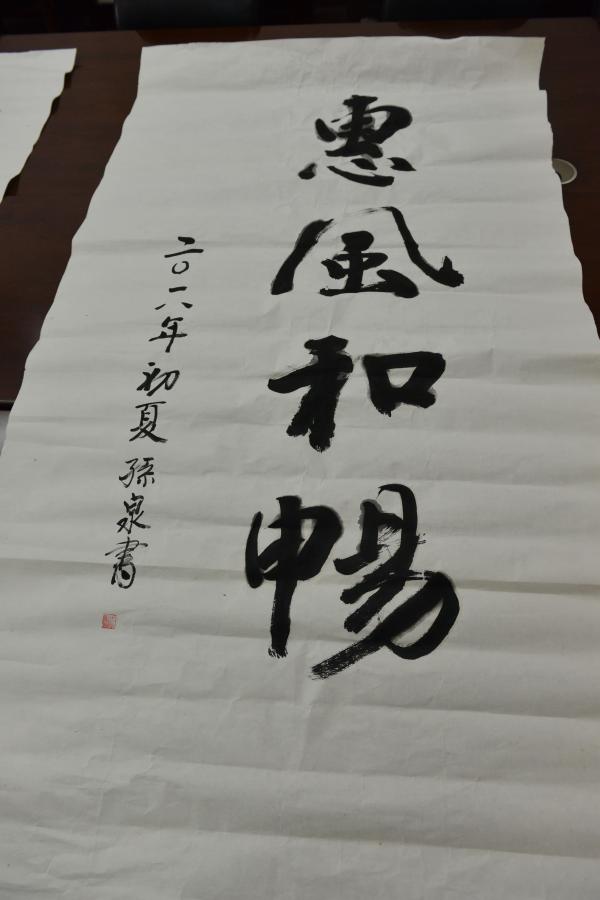 惠風和暢
二〇一八年初夏孫泉書